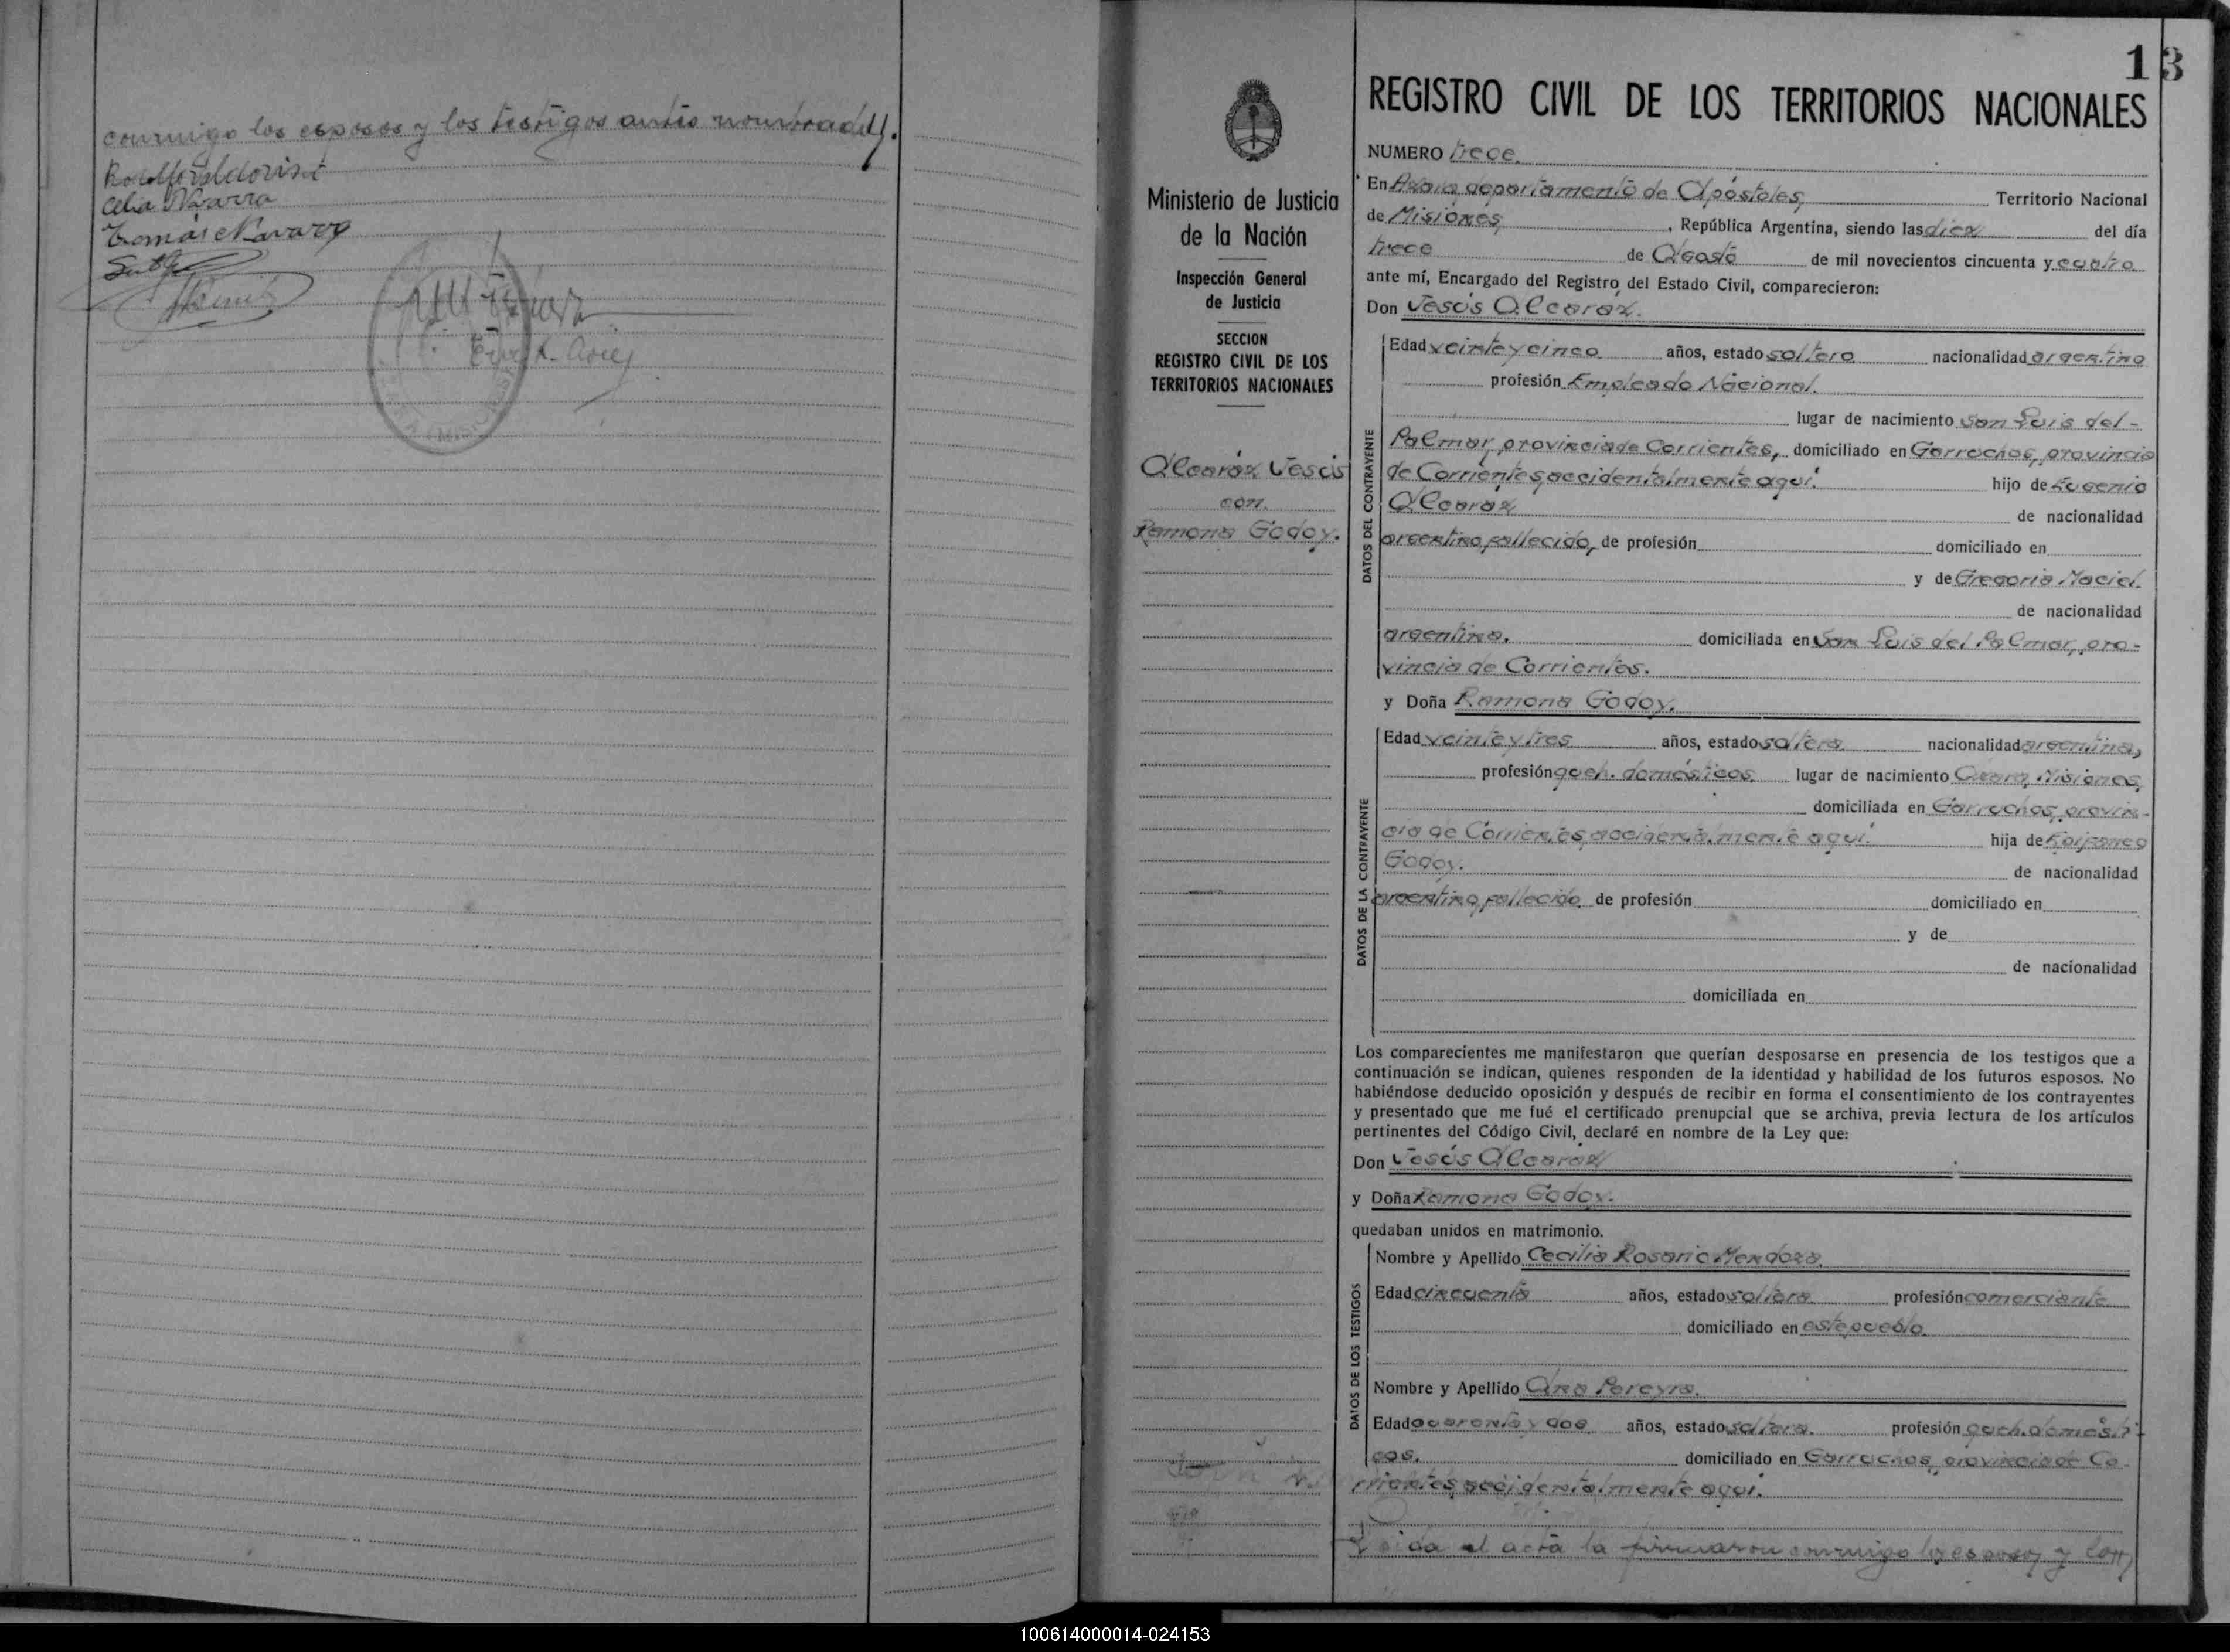 conmigo los esposos y los testigos antes nombrados.
Celia Navarro
Tomás Navarro
13
REGISTRO CIVIL DE LOS TERRITORIOS NACIONALES
Ministerio de Justicia
de la Nación
Inspección General
de Justicia
SECCION
REGISTRO CIVIL DE LOS
TERRITORIOS NACIONALES
Alcaráz Jesús
con
Ramona Godoy.
NUMERO trece.
En Azara, departamento de Apóstoles, Territorio Nacional
de Misiones, , República Argentina, siendo las diez del día
trece de Agosto de mil novecientos cincuenta y cuatro
ante mí, Encargado del Registro del Estado Civil, comparecieron:
Don Jesús Alcaráz.
DATOS DEL CONTRAYENTE
Edad veinte y cinco años, estado soltero nacionalidad argentino
profesión Empleado Nacional.
lugar de nacimiento San Luis del-
Palmar, provincia de Corrientes, domiciliado en Garruchos, provincia
de Corrientes, accidentalmente aquí. hijo de Eugenio
Alcaráz de nacionalidad
argentino, fallecido, de profesión domiciliado en
y de Gregoria Maciel.
de nacionalidad
argentina. domiciliada en San Luis del Palmar, pro-
vincia de Corrientes.
y Doña Ramona Godoy.
DATOS DE LA CONTRAYENTE
Edad veinte y tres años, estado soltera nacionalidad argentina,
profesión queh. domésticos lugar de nacimiento Azara, Misiones,
domiciliada en Garruchos, provin-
cia de Corrientes, accidentalmente aquí. hija de
Godoy. de nacionalidad
argentino, fallecido de profesión domiciliado en
y de
de nacionalidad
domiciliada en
Los comparecientes me manifestaron que querían desposarse en presencia de los testigos que a
continuación se indican, quienes responden de la identidad y habilidad de los futuros esposos. No
habiéndose deducido oposición y después de recibir en forma el consentimiento de los contrayentes
y presentado que me fué el certificado prenupcial que se archiva, previa lectura de los artículos
pertinentes del Código Civil, declaré en nombre de la Ley que:
Don Jesús Alcaraz
y Doña Ramona Godoy.
quedaban unidos en matrimonio.
DATOS DE LOS TESTIGOS
Nombre y Apellido Cecilia Rosario Mendoza.
Edad cincuenta años, estado soltera. profesión comerciante
domiciliado en este pueblo.
Nombre y Apellido Ana Pereyra.
Edad cuarenta y dos años, estado soltera. profesión queh. domésti-
cos. domiciliado en Garruchos, provincia de Co-
rrientes, accidentalmente aquí.
Leida el acta la firmaron conmigo los esposos y los
100614000014-024153